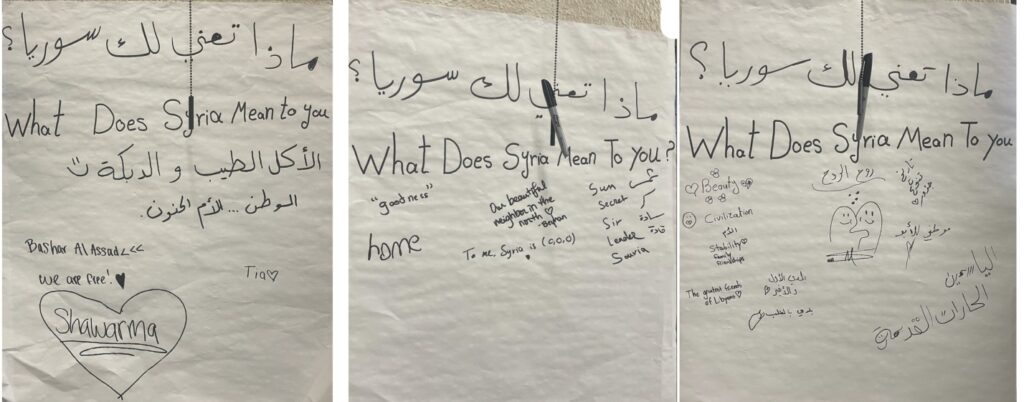 ماذا تعني لك سوريا؟
What Does Syria Mean to you
الأكل الطيب و الدبكة
الوطن ... الأم الحنون.
Bashar Al Assad <<<
we are free! ♥
Tia♡
Shawarma
ماذا تعني لك سوريا؟
What Does Syria Mean To you?
"goodness"
home
Our beautiful
neighbor in the
north ♡
To me, Syria is (0,0,0)
Sun شمس
Secret سر
Sir سادة
Leader قادة
Souria
ماذا تعني لك سوريا؟
What Does Syria Mean To You
♡ Beauty
Civilization
Stability
Family
Friendships
The greatest friends
of Libyans
روح الروح
موطني للأبد
الياسمين
الحارات القديمة